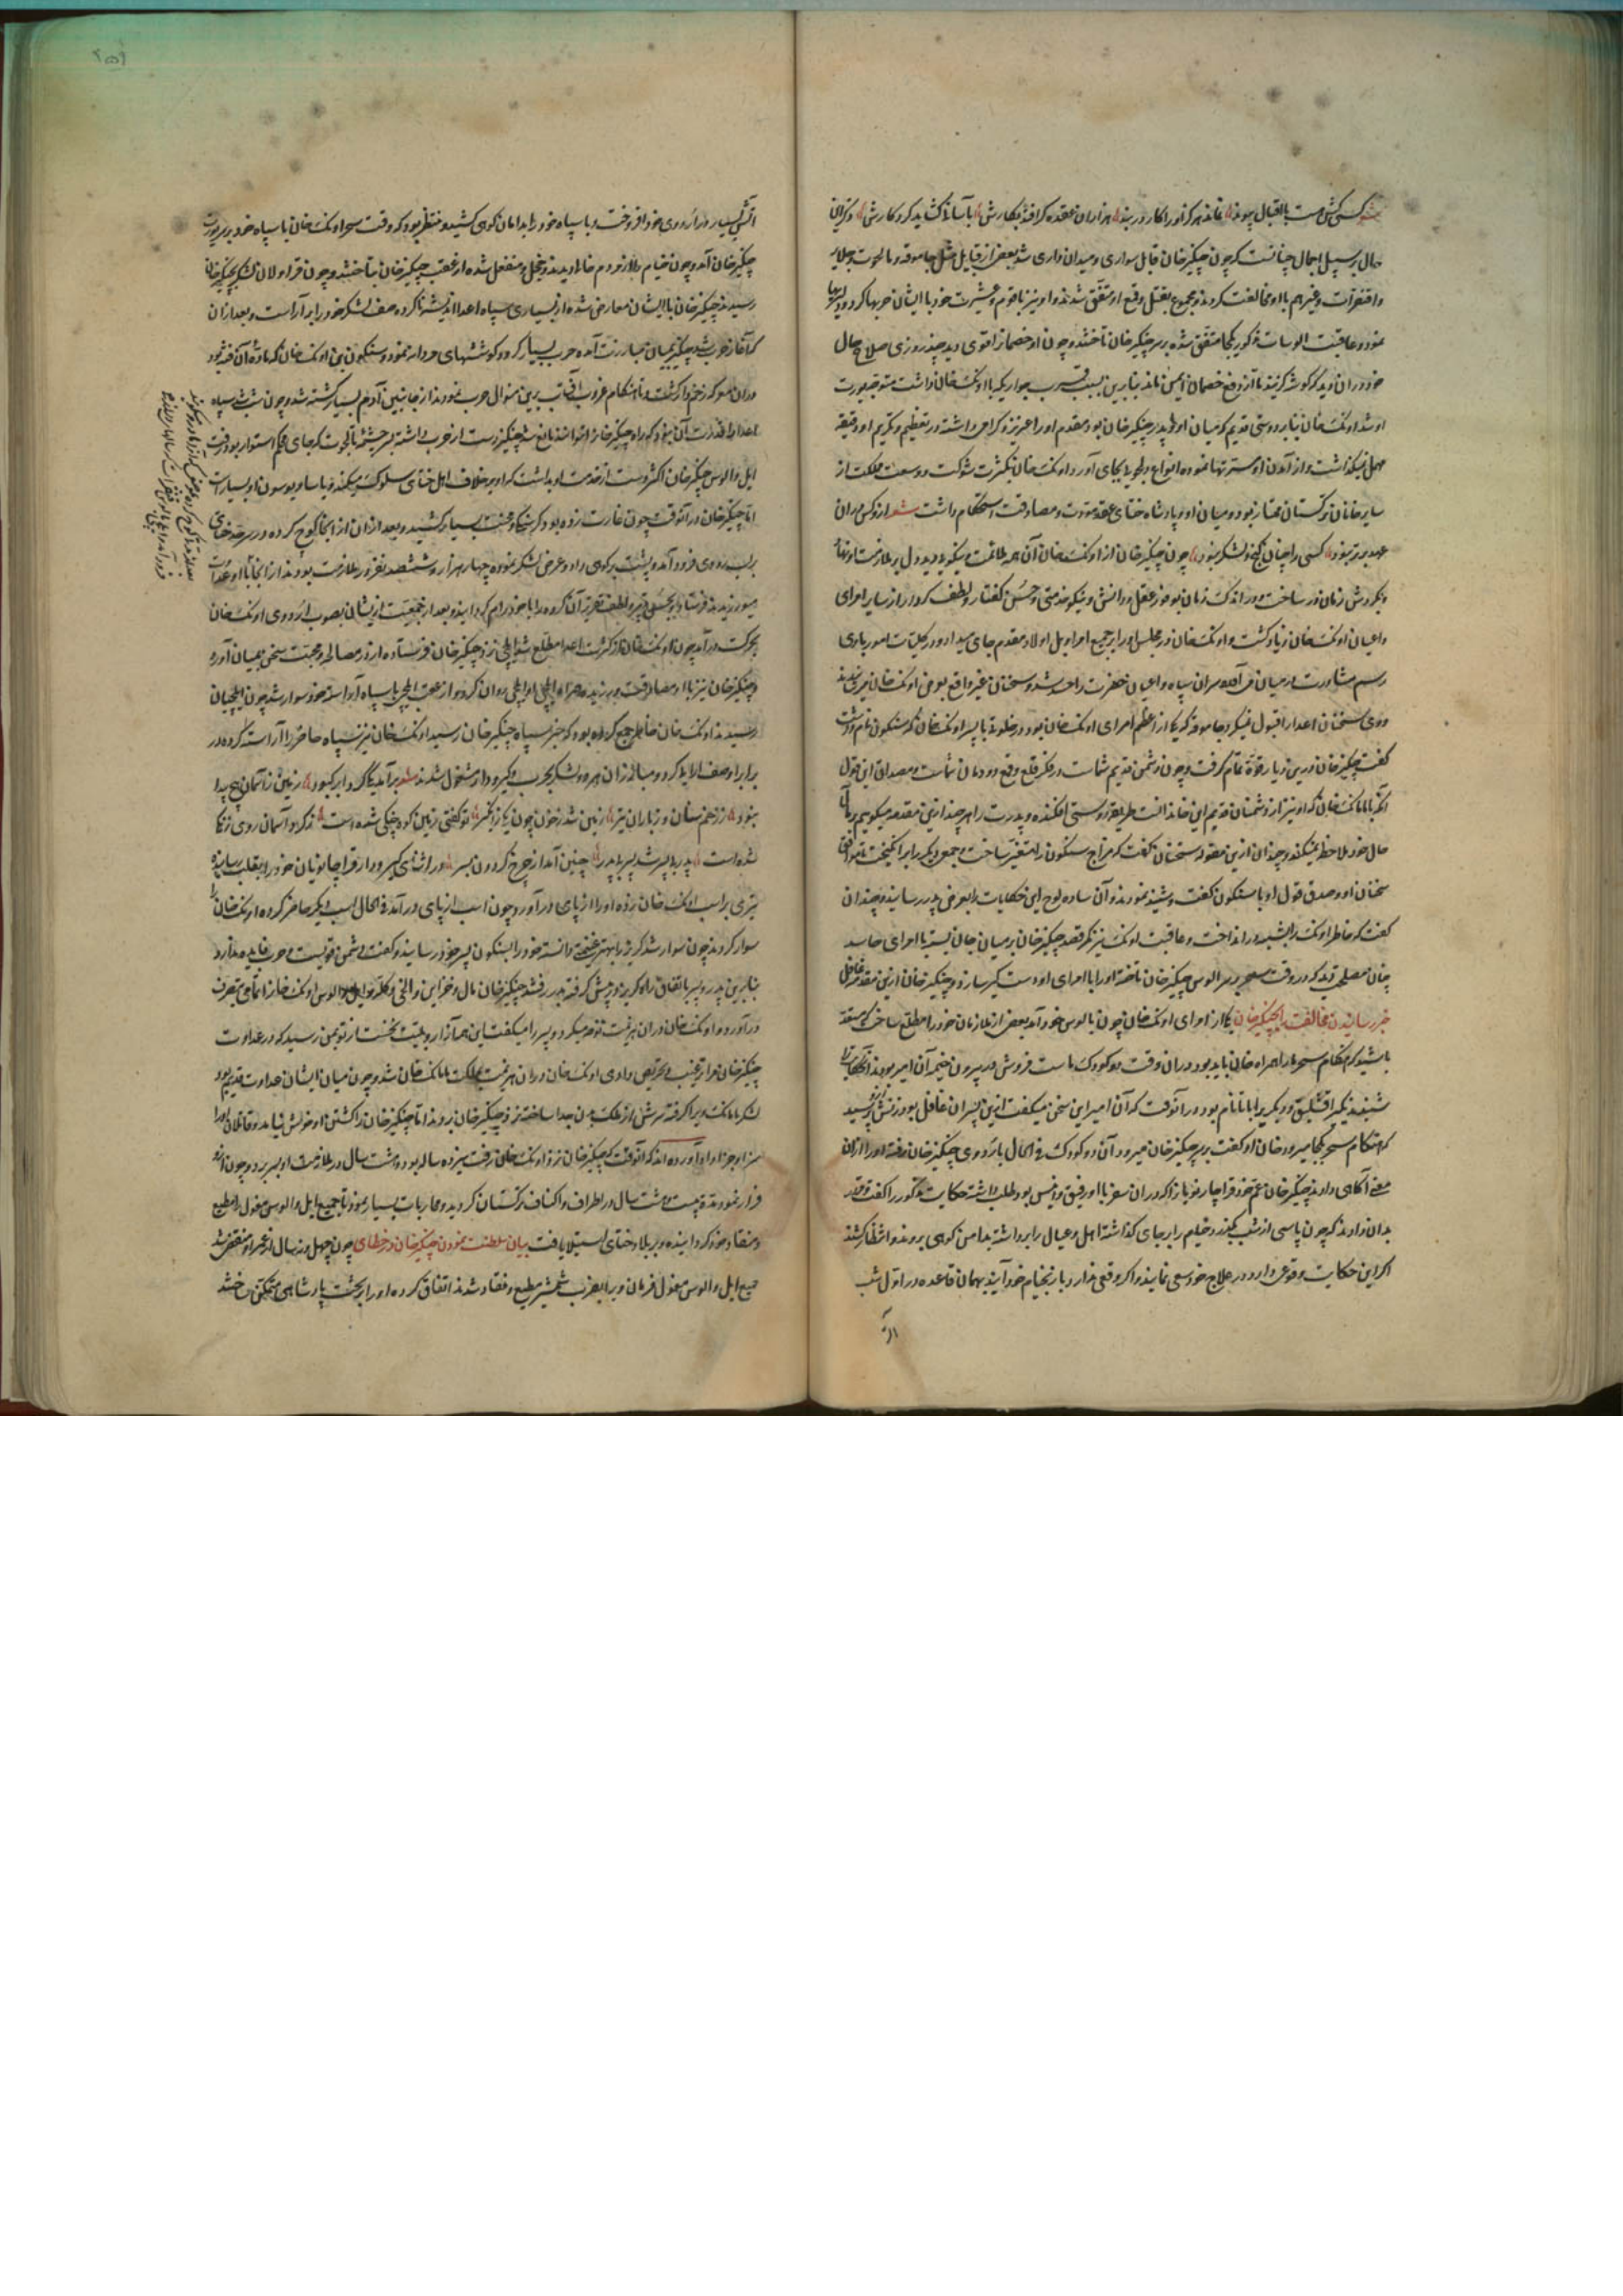 کسی کش هست با اقبال پیوند نماند هرگز اورا کار در بند هزاران عقده کر افتد بکارش بآسانی کشاید کردکارش
حال بر سبیل اجمال چنانست که چون چنکیز خان قابل سواری و میدان داری شد بعضی از قبایل مثل جاموقه و تایجوت و جلایر
و غیر هم با او مخالفت کردند و مجموع بقتل و قمع او متفق شدند و او نیز با قوم و عشیرت خود با ایشان حربها کرد
نمود و عاقبت الوسات مذکور یکجا متفق شده بر سر چنکیز خان تاختند و چون او خصمانرا قوی دید چند روزی صلاح حال
خود در آن دید که کوشه کزیند تا از دفع خصمان ایمن ماند بنابرین بسبب قرب جواری که با اونک خان داشت متوجه
او شد اونک خان بنابر دوستی قدیم که میان او و پدر چنکیز خان بود مقدم او را عزیز و کرامی داشته در تعظیم و تکریم او دقیقه
مهمل نکذاشت و از آمدن او مسرتها نموده انواع دلجویی بجای آورد و اونک خان بکثرت شوکت و وسعت مملکت از
سایر خانان ترکستان ممتاز بود و میان او و پادشاه ختای عقد مودت و مصادقت استحکام داشت شعر ازو کس در آن
عهد برتر نبود کسی را چنان کنج و لشکر نبود چون چنکیز خان از اونک خان آن همه ملاءمت و نیکویی دید دل بر ملازمت او نهاد
و بکردش زمان در ساخت و در اندک زمان بوفور عقل و دانش و نیکو خدمتی و حسن کفتار و لطف کردار از سایر امرای
و اعیان اونک خان زیاد کشت و اونک خان در مجلس او را بر جمیع امرا و بل اولاد مقدم جای میداد و در کلیات امور با وی
رسم مشاورت در میان می آورد سران سپاه و اعیان حضرت را حسد شد و سخنان غیر واقع بعرض اونک خان میرسانیدند
و وی سخنان اعدا را قبول نمیکرد جاموقه که یکی از اعظم امرای اونک خان بود در خلوت با پسر اونک خان که سنکون نام داشت
کفت چنکیز خان درین دیار قوت تمام کرفت و چون دشمن قدیم شماست در فکر قلع و قمع دودمان شماست و مصداق این قول
آنکه با تایانک خان که او نیز از دشمنان قدیم این خاندانست طریقه دوستی افکنده و پدرت را هر چند ازین مقدمه میکوییم
حال خود ملاحظه نمیکند و چندان ازین مقوله سخنان بکفت که مزاج سنکون را متغیر ساخت و جمعی دیکر را بر انکیخت تا موافق
سخنان او و صدق قول او با سنکون کفت و شنید نمودند و آن ساده لوح این حکایات را بعرض پدر رسانید و چندان
کفت که خاطر اونک را بشبهه در انداخت و عاقبت اونک نیز کمر قصد چنکیز خان بر میان جان بست با امرای حاسد
چنان مصلحت دید که در وقت سحر بر سر الوس چنکیز خان تاخته او را با امرای او دستکیر سازد و چنکیز خان ازین مقدمه غافل
خبر رسانیدن مخالفت را بچنکیز خان یکی از امرای اونک خان چون بالوس خود آمد بعضی از ملازمان خود را مطلع ساخت که مستعد
باشید که هنکام سحر ما را همراه خان باید بود در آن وقت دو کودک ماست فروش در بیرون خیمه آن امیر بودند این حکایت را
شنیدند یکی را قشلیق و دیکری را باتا نام بود در آنوقت که آن امیر این سخن میکفت ازین پسران غافل بود زنش پرسید
که هنکام سحر بکجا میرود خان او کفت بر سر چنکیز خان میرود آن دو کودک فی الحال باردوی چنکیز خان رفته او را ازان
معنی آکاهی دادند چنکیز خان عم خود قراچار نویان را که در آن سفر با او رفیق و انیس بود طلب داشته حکایت مذکور را کفت و قرار
بدان دادند که چون پاسی از شب بکذرد خیام را بر جای کذاشته اهل و عیال را برداشته بدامن کوهی بروند و انتظار کشند
اکر این حکایت وقوعی دارد در علاج خود سعی نمایند و اکر وقعی ندارد باز بخیام خود آیند بهمان قاعده در اول شب
آتش بسیار در اردوی خود افروخت و با سپاه خود را بدامان کوهی کشید و منتظر بود که وقت سحر اونک خان با سپاه خود بر سر اردوی
چنکیز خان آمد و چون خیام را از مردم خالی دیدند خجل و منفعل شده از عقب چنکیز خان بتاختند و چون قراولان لشکر بچنکیز خان
رسیدند چنکیز خان با ایشان معارض شده از بسیاری سپاه اعدا اندیشه ناکرده صف لشکر خود را بر آراست و بعد از آن
که آغاز حرب شد چنکیز بمیان مبارزت آمده حرب بسیار کرد و کوششهای مردانه نمود و سنکون بن اونک خان که ماده آن فتنه بود
در آن معرکه زخم دار کشت و تا هنکام غروب آفتاب برین منوال حرب نمودند از جانبین آدم بسیار کشته شد و چون شب شد سپاه
اعدا را قدرت آن نبود که راه چنکیز خان توانند مانع شد چنکیز دست از حرب داشته بر چشمه بالجوت که جای محکم استوار بود رفت
ایل و الوس چنکیز خان اکثر دست از خدمت او بداشت که او بر خلاف اهل ختای سلوک میکند و یاساو یوسون او بسیار است
اما چنکیز خان در آنوقت چون غارت زده بود کرسنکی و محنت بسیار کشید و بعد از آن از آنجا کوچ کرده در سرحد ختای
بر لب رودی فرود آمده پشت بر کوهی داد و عرض لشکر نموده چهار هزار و ششصد نفر در ملازمت بودند از آنجا با او عداوت
میورزیدند فرستاد و بحسن تدبیر و لطف تقریر آن کروه را با خود رام کردانید و بعد از جمعیت ایشان بصوب اردوی اونک خان
بحرکت در آمد چون اونک خان از کثرت اعدا مطلع شد ایلچی نزد چنکیز خان فرستاده از در مصالحه و محبت سخن بمیان آورد
و چنکیز خان نیز با او مصادقت ورزیده همراه ایلچی او ایلچی روان کرد و از عقب ایلچی با سپاه آراسته خود سوار شد چون ایلچیان
رسیدند اونک خان خاطر جمع کرده بود که خبر سپاه چنکیز خان رسید اونک خان نیز سپاه حاضر را آراسته کرده در
برابر او صف آرایی کرد و مبارزان هر دو لشکر بحرب و کیرودار مشغول شدند شعر بر آمد یکی کرد و ابر کبود زمین ز آسمان هیچ پیدا
نبود ز زخم سنان و ز باران تیر زمین شد ز خون چون یکی آبگیر تو کفتی زمین کوه جنکی شده است ز کرد آسمان روی زنکی
شده است پدر بر پسر شد پسر بر پدر چنین آمد از چرخ کردون بسر در اثنای کیرودار قراچار نویان خود را بقلب رسانیده
تیری بر اسب اونک خان زده او را از پای در آورد و چون اسب از پای در آمد فی الحال اسب دیکر حاضر کرده اونک خان را
سوار کردند چون سوار شد کریز را بهتر غنیمت دانست خود را بسنکون پسر خود رسانید و کفت دشمن قویست و حرب فایده ندارد
بنابرین پدر و پسر باتفاق راه کریز در پیش کرفته بدر رفتند چنکیز خان مال و خزاین و الاغ و کله و ایل و الوس اونک خان را تمامی بتصرف
در آورد و اونک خان در آن هزیمت نوحه میکرد و پسر را میکفت این همه آزار و بلیت نخست از تو بمن رسید که در عداوت
چنکیز خان مرا ترغیب و تحریص دادی اونک خان در آن هزیمت بمملکت تایانک خان شد و چون میان ایشان عداوت قدیم بود
لشکر تایانک ویرا کرفته سرش از ملک بدن جدا ساخته نزد چنکیز خان بردند اما چنکیز خان را کشتن او خوش نیامد و قاتلان او را
سزا و جزا داد آورده اند که آنوقت که چنکیز خان نزد اونک خان رفت سیزده ساله بود و هشت سال در ملازمت او بسر برد و چون ازو
فرار نمود مدت بیست و هشت سال در اطراف و اکناف ترکستان کردید و محاربات بسیار نمود تا جمیع ایل و الوس مغول را مطیع
و منقاد خود کردانیده و بر بلاد ختای استیلا یافت بیان سلطنت نمودن چنکیز خان در خطای چون چهل و نه سال از عمر او منقضی شد
جمیع ایل و الوس مغول فرمان ویرا بضرب شمشیر مطیع و منقاد شدند اتفاق کرده او را بر تخت پادشاهی متمکن ساختند